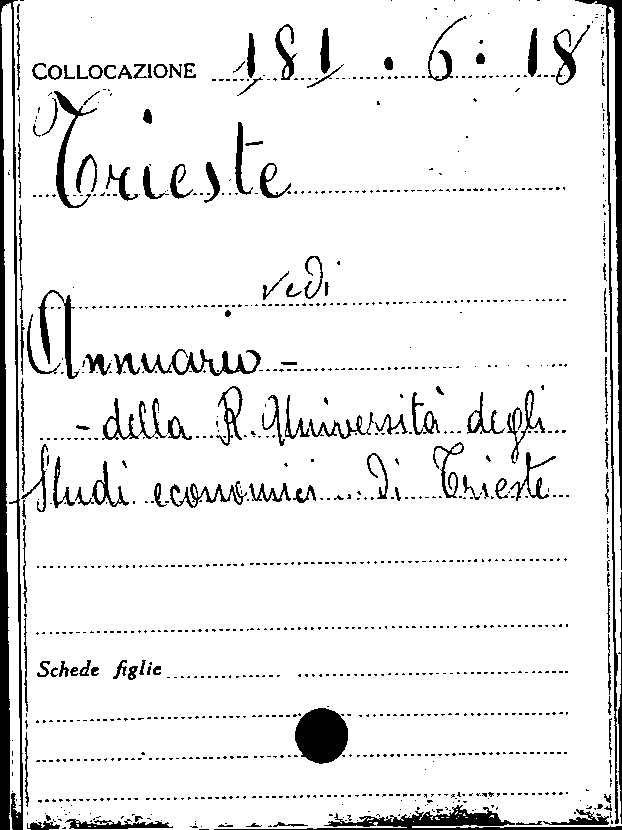 COLLOCAZIONE 181.6.18
Trieste
vedi
Annuario -
- della R. Università degli
Studi economici... di Trieste
Schede figlie